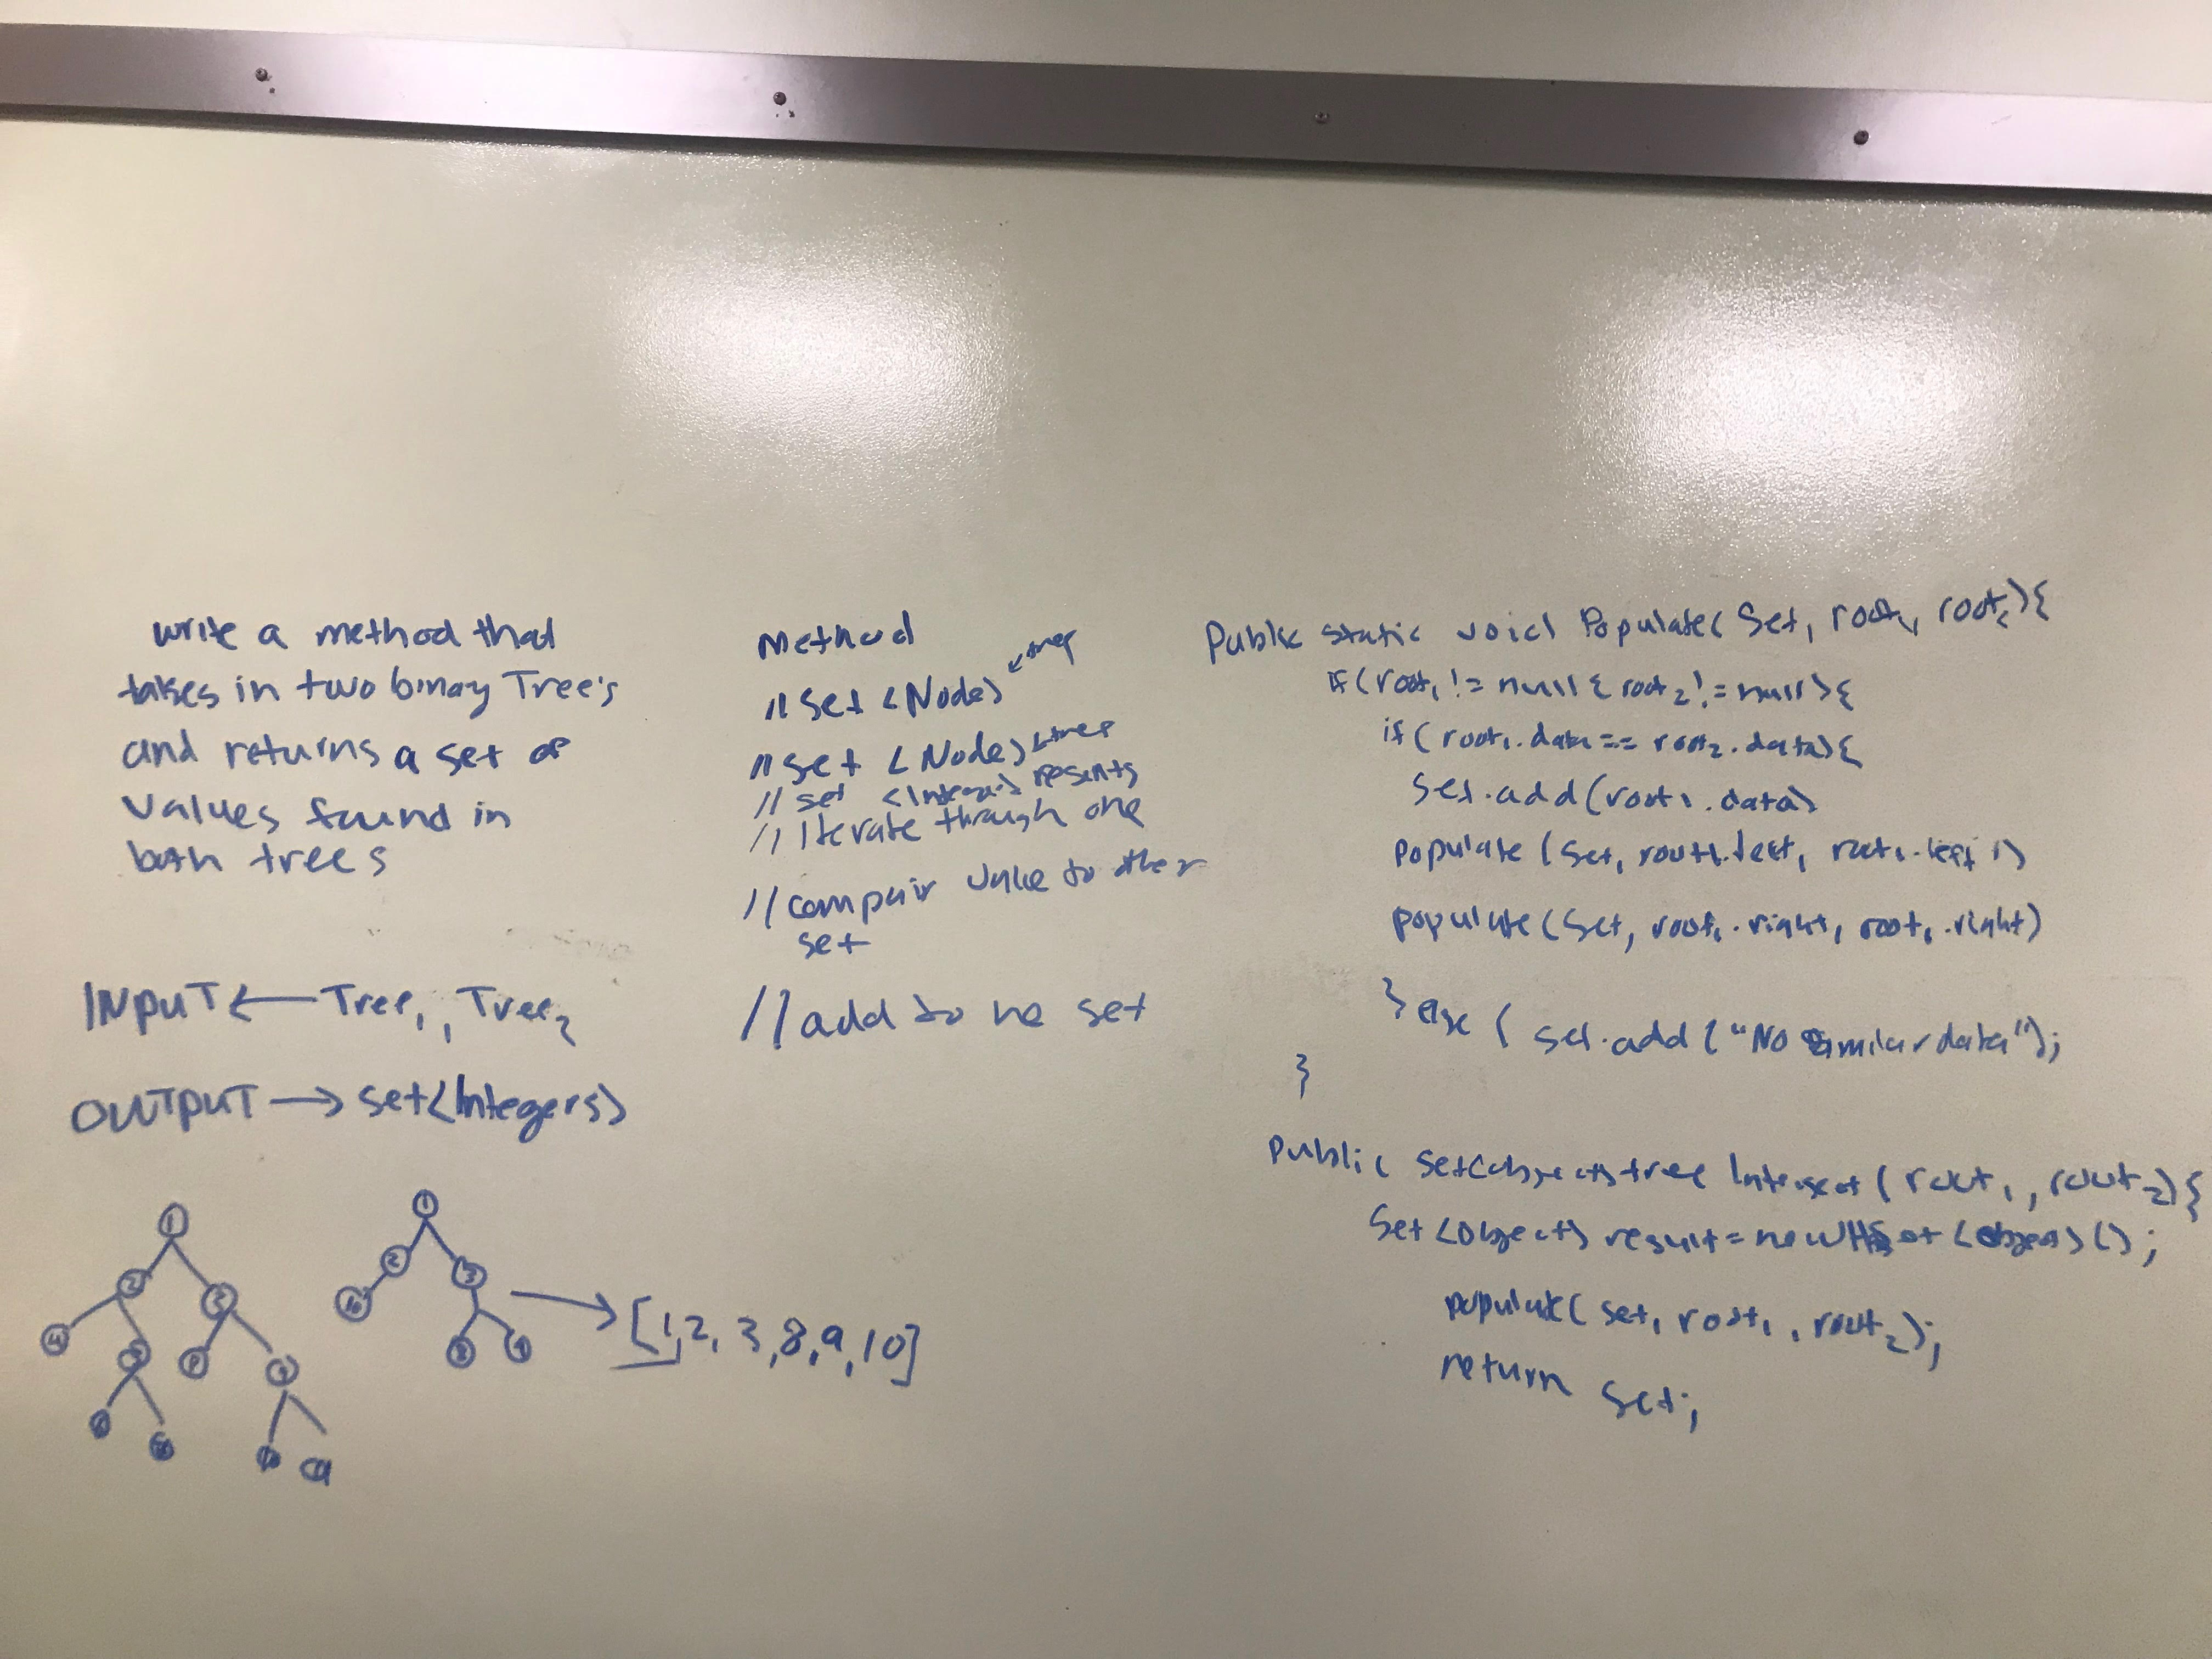 write a method that
takes in two binay Tree's
and returns a set of
values found in
both trees
INPUT ← Tree₁, Tree₂
OUTPUT → set<Integers>
1
2
4
1
2
3
[1,2, 3,8,9,10]
Method
// set <Node> ← tree
// set <Node> ← tree
// set <Integer>
// Iterate through one
// compair value to other
set
// add to ne set
Public static void Populate( Set, root₁, root₂){
if(root₁ != null & root₂ != null){
if( root₁.data == root₂.data){
set.add(root₁.data)
populate (set, root1.left, root₁.left)
populate(set, root₁.right, root₁.right)
} else { set.add ("No similar data");
}
Public set<object> tree Intersect( root₁, root₂){
Set <Object> result = new <object>();
populate( set, root₁, root₂);
return set;